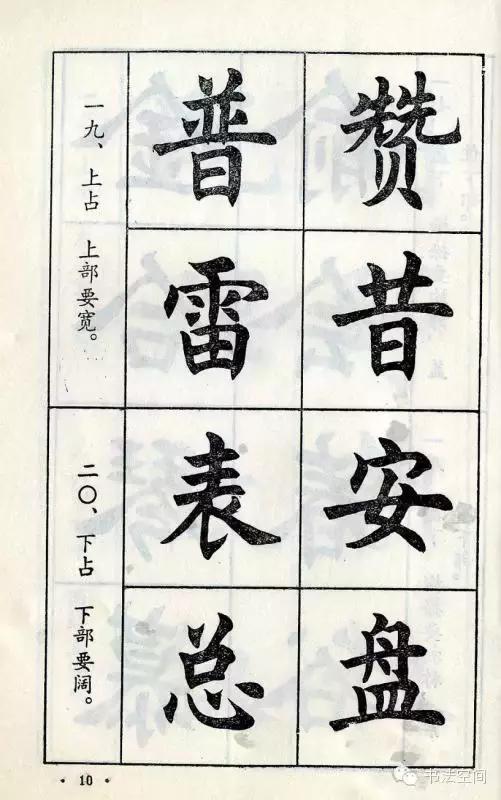 一九、上占 上部要宽。
普赞
雷昔
二〇、下占 下部要阔。
表安
总盘
· 10 ·
书法空间